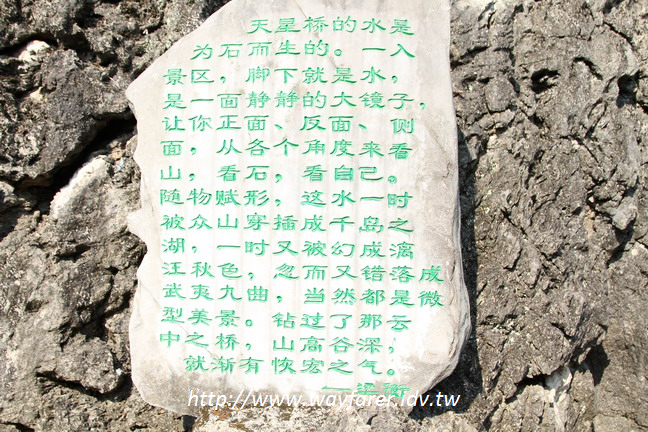 天星桥的水是
为石而生的。一入
景区，脚下就是水，
是一面静静的大镜子，
让你正面、反面、侧
面，从各个角度来看
山，看石，看自己。
随物赋形，这水一时
被众山穿插成千岛之
湖，一时又被幻成漓
江秋色，忽而又错落成
武夷九曲，当然都是微
型美景。钻过了那云
中之桥，山高谷深，
就渐有恢宏之气。
——梁衡
http://www.wayfarer.idv.tw